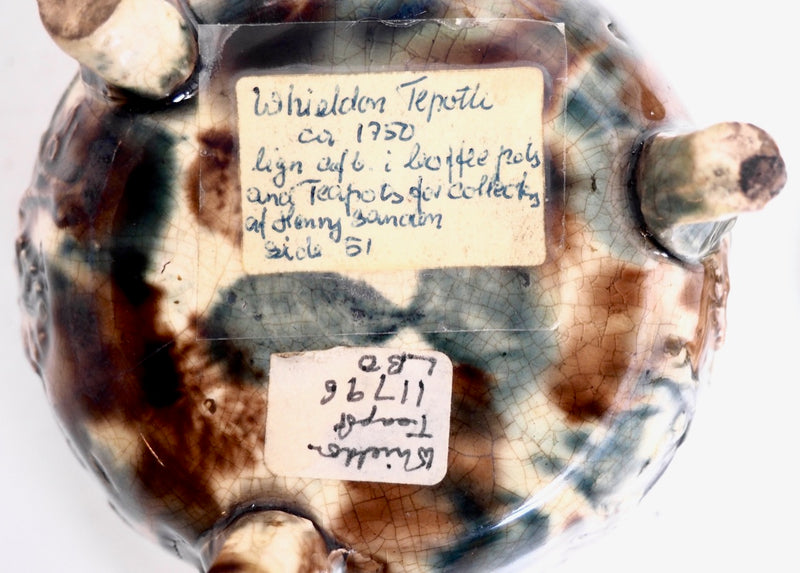 Whieldon Tepotte
ca 1750
lign afb. i Coffee pots
and Teapots for collectors
af Henny Sandon
side 51
Whieldon
Teapot
11796
LBO